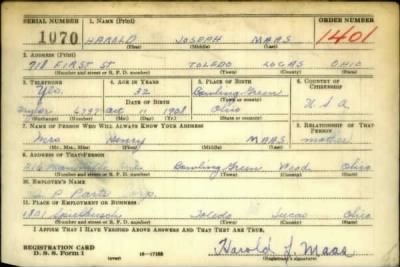 SERIAL NUMBER 1. NAME (Print) ORDER NUMBER
1070 HAROLD JOSEPH MAAS 1401
(First) (Middle) (Last)
2. ADDRESS (Print)
718 FIRST ST TOLEDO LUCAS OHIO
(Number and street or R. F. D. number) (Town) (County) (State)
3. TELEPHONE 4. AGE IN YEARS 5. PLACE OF BIRTH 6. COUNTRY OF CITIZENSHIP
Yes. 32 Bowling Green
DATE OF BIRTH (Town or county)
Taylor 6797 Oct 11 1908 Ohio U S A
(Exchange) (Number) (Mo.) (Day) (Yr.) (State or country)
7. NAME OF PERSON WHO WILL ALWAYS KNOW YOUR ADDRESS 8. RELATIONSHIP OF THAT PERSON
Mrs Henry MAAS mother
(Mr., Mrs., Miss) (First) (Middle) (Last)
9. ADDRESS OF THAT PERSON
216 Bowling Green Wood Ohio
(Number and street or R. F. D. number) (Town) (County) (State)
10. EMPLOYER'S NAME
Parts
11. PLACE OF EMPLOYMENT OR BUSINESS
1801 Spielbusch Toledo Lucas Ohio
(Number and street or R. F. D. number) (Town) (County) (State)
I AFFIRM THAT I HAVE VERIFIED ABOVE ANSWERS AND THAT THEY ARE TRUE.
REGISTRATION CARD
D. S. S. Form 1 (over) 16—17105 Harold J. Maas
(Registrant's signature)